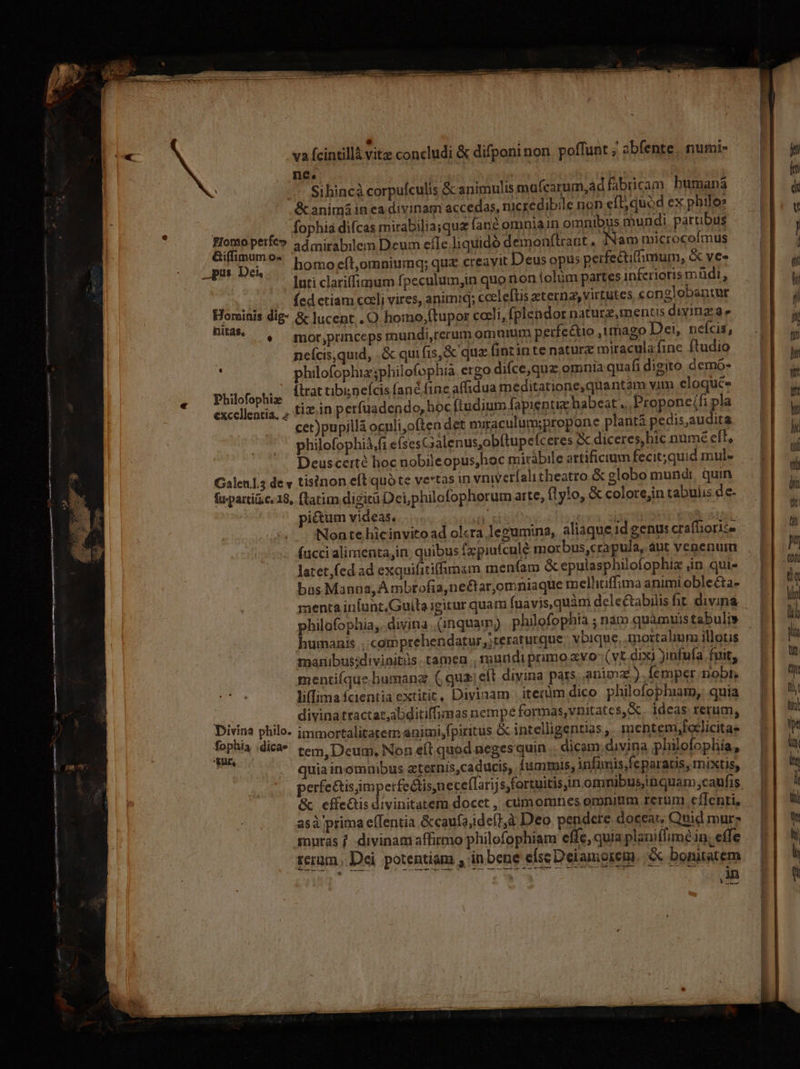 va ſcintillâ vitæ concludi & diſponi non poſſunt; abſente numi-
ne.
Si hinc à corpuſculis & animulis muſcarum, ad fabricam humanã
& animã in ea divinam accedas, nicredibile non eſt, quòd ex philo-
ſophia diſcas mirabilia; quæ ſanè omnia in omnibus mundi partibus
Homo perfe- admirabilem Deum eſſe liquidò demonſtrant. Nam microcoſmus
ctiſſimum o- homo eſt, omniumq; quæ creavit Deus opus perfectiſſimum, & ve-
pus Dei. luti clariſſimum ſpeculum, in quo non ſolùm partes inferioris mũdi,
ſed etiam cœlj vires, animiq; cœleſtis æternæ, virtutes conglobantur
Hominis dig- & lucent. O homo, ſtupor cœli, ſplendor naturæ, mentis divinæ a-
nitas. mor, princeps mundi, rerum omnium perfectio, imago Dei, neſcis,
neſcis, quid, & qui ſis, & quæ ſint in te naturæ miracula ſine ſtudio
philoſophiæ; philoſophia ergo diſce, quæ omnia quaſi digito demõ-
ſtrat tibi; neſcis ſanè ſine aſſidua meditatione, quantàm vim eloquẽ-
Philoſophiæ tiæ in perſuadendo, hoc ſtudium ſapientiæ habeat. Propone (ſi pla
excellentia. cet) pupillã oculi, oſtendet miraculum; propone plantã pedis, audita
philoſophiâ, ſi eſses Galenus, obſtupeſceres & diceres, hîc numẽ eſt,
Deus certè hoc nobile opus, hoc miràbile artificium fecit; quid mul-
Galen. l. 3 de v tis? non eſt quò te vertas in vniverſali theatro & globo mundi quin
ſu partiũ. c. 18. ſtatim digitũ Dei, philoſophorum arte, ſtylo, & colore, in tabulis de-
pictum videas.
Non te hîc invito ad olera legumina, aliaque id genus craſſioris
ſucci alimenta, in quibus ſæpiuſculè morbus, crapula, aut venenum
latet, ſed ad exquiſitiſſimam menſam & epulas philoſophiæ in qui-
bus Manna, Ambroſia, nectar, omniaque mellitiſſima animi oblecta-
menta inſunt. Guſta igitur quam ſuavis, quàm delectabilis ſit divina
philoſophia, divina (inquam) philoſophia; nam quàmuis tabulis
humanis comprehendatur, teraturque vbique, mortalium illotis
manibus; divinitùs tamen, mundi primo ævo (vt dixi) infuſa fuit,
mentiſque humanæ (quæ eſt divina pars animæ) ſemper nobi-
liſſima ſcientia extitit. Divinam iterùm dico philoſophiam, quia
divina tractat, abditiſſimas nempe formas, vnitates, & ideas rerum,
Divina philo- immortalitatem animi, ſpiritus & intelligentias, mentem, fœlicita-
ſophia dica- tem, Deum. Non eſt quod neges quin dicam divina philoſophia,
tur. quia in omnibus æternis, caducis, ſummis, infimis, ſeparatis, mixtis,
perfectis, imperfectis, neceſſarijs, fortuitis, in omnibus, inquam, cauſis
& effectis divinitatem docet, cùm omnes omnium rerum eſſenti,
as à prima eſſentia & cauſa, ideſt, à Deo pendere doceat, Quid mur-
muras? divinam affirmo philoſophiam eſſe, quia planiſſimè in eſſe
rerum Dei potentiam, in bene eſse Dei amorem & bonitatem
in